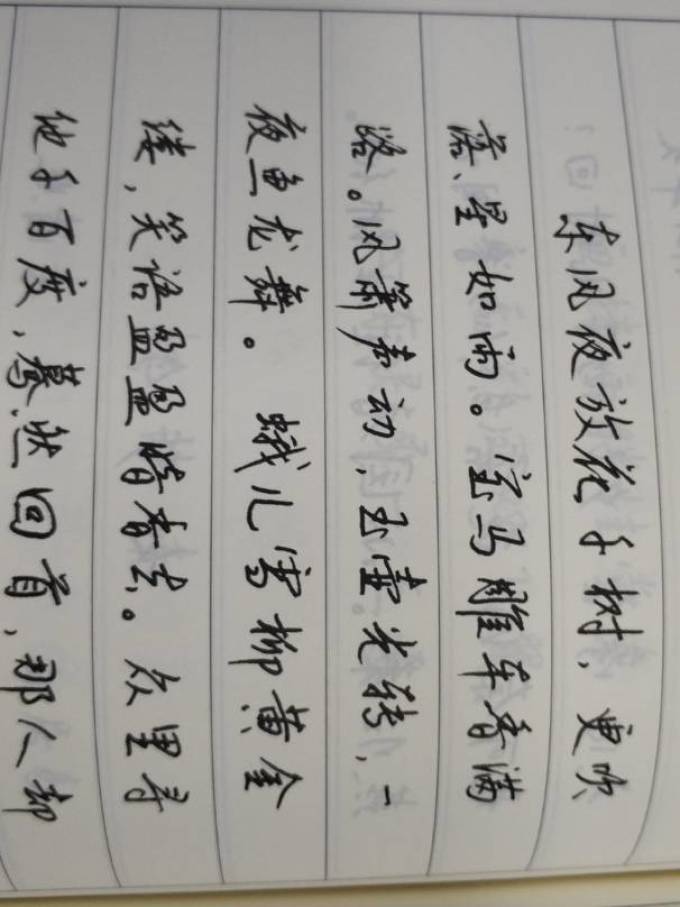 东风夜放花千树，更吹
落、星如雨。宝马雕车香满
路。风箫声动，玉壶光转，一
夜鱼龙舞。 蛾儿雪柳黄金
缕，笑语盈盈暗香去。众里寻
他千百度，蓦然回首，那人却